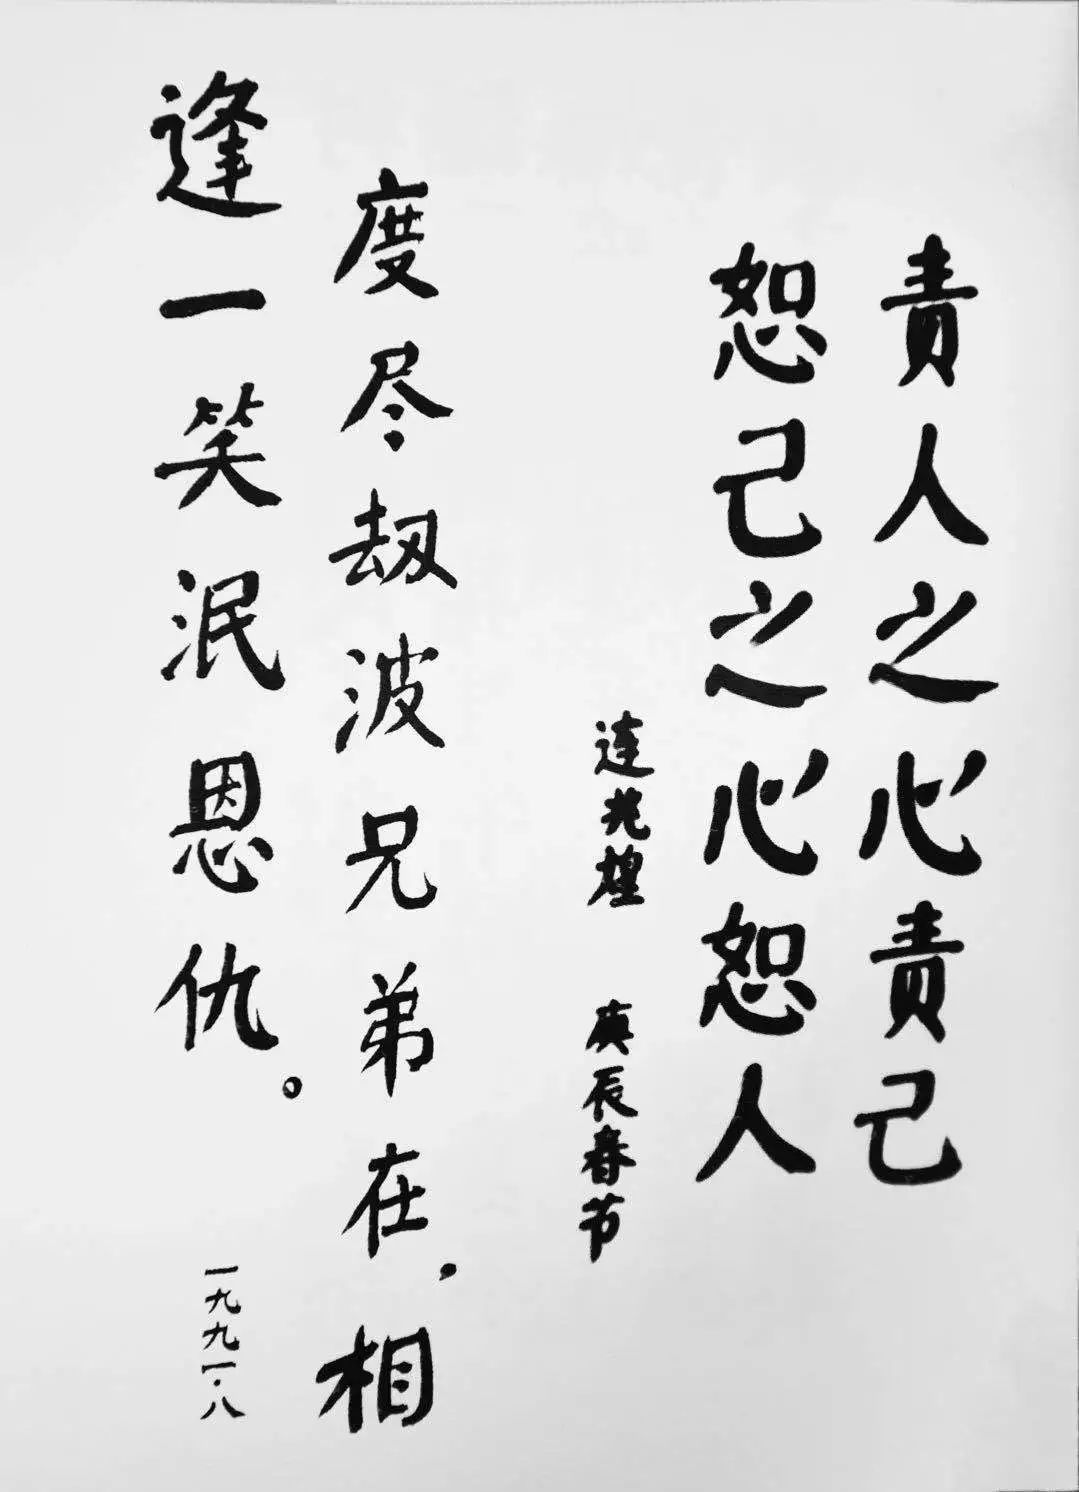 责人之心责己
恕己之心恕人
连兆煌 庚辰春节
度尽劫波兄弟在.相
逢一笑泯恩仇。
一九九一.八